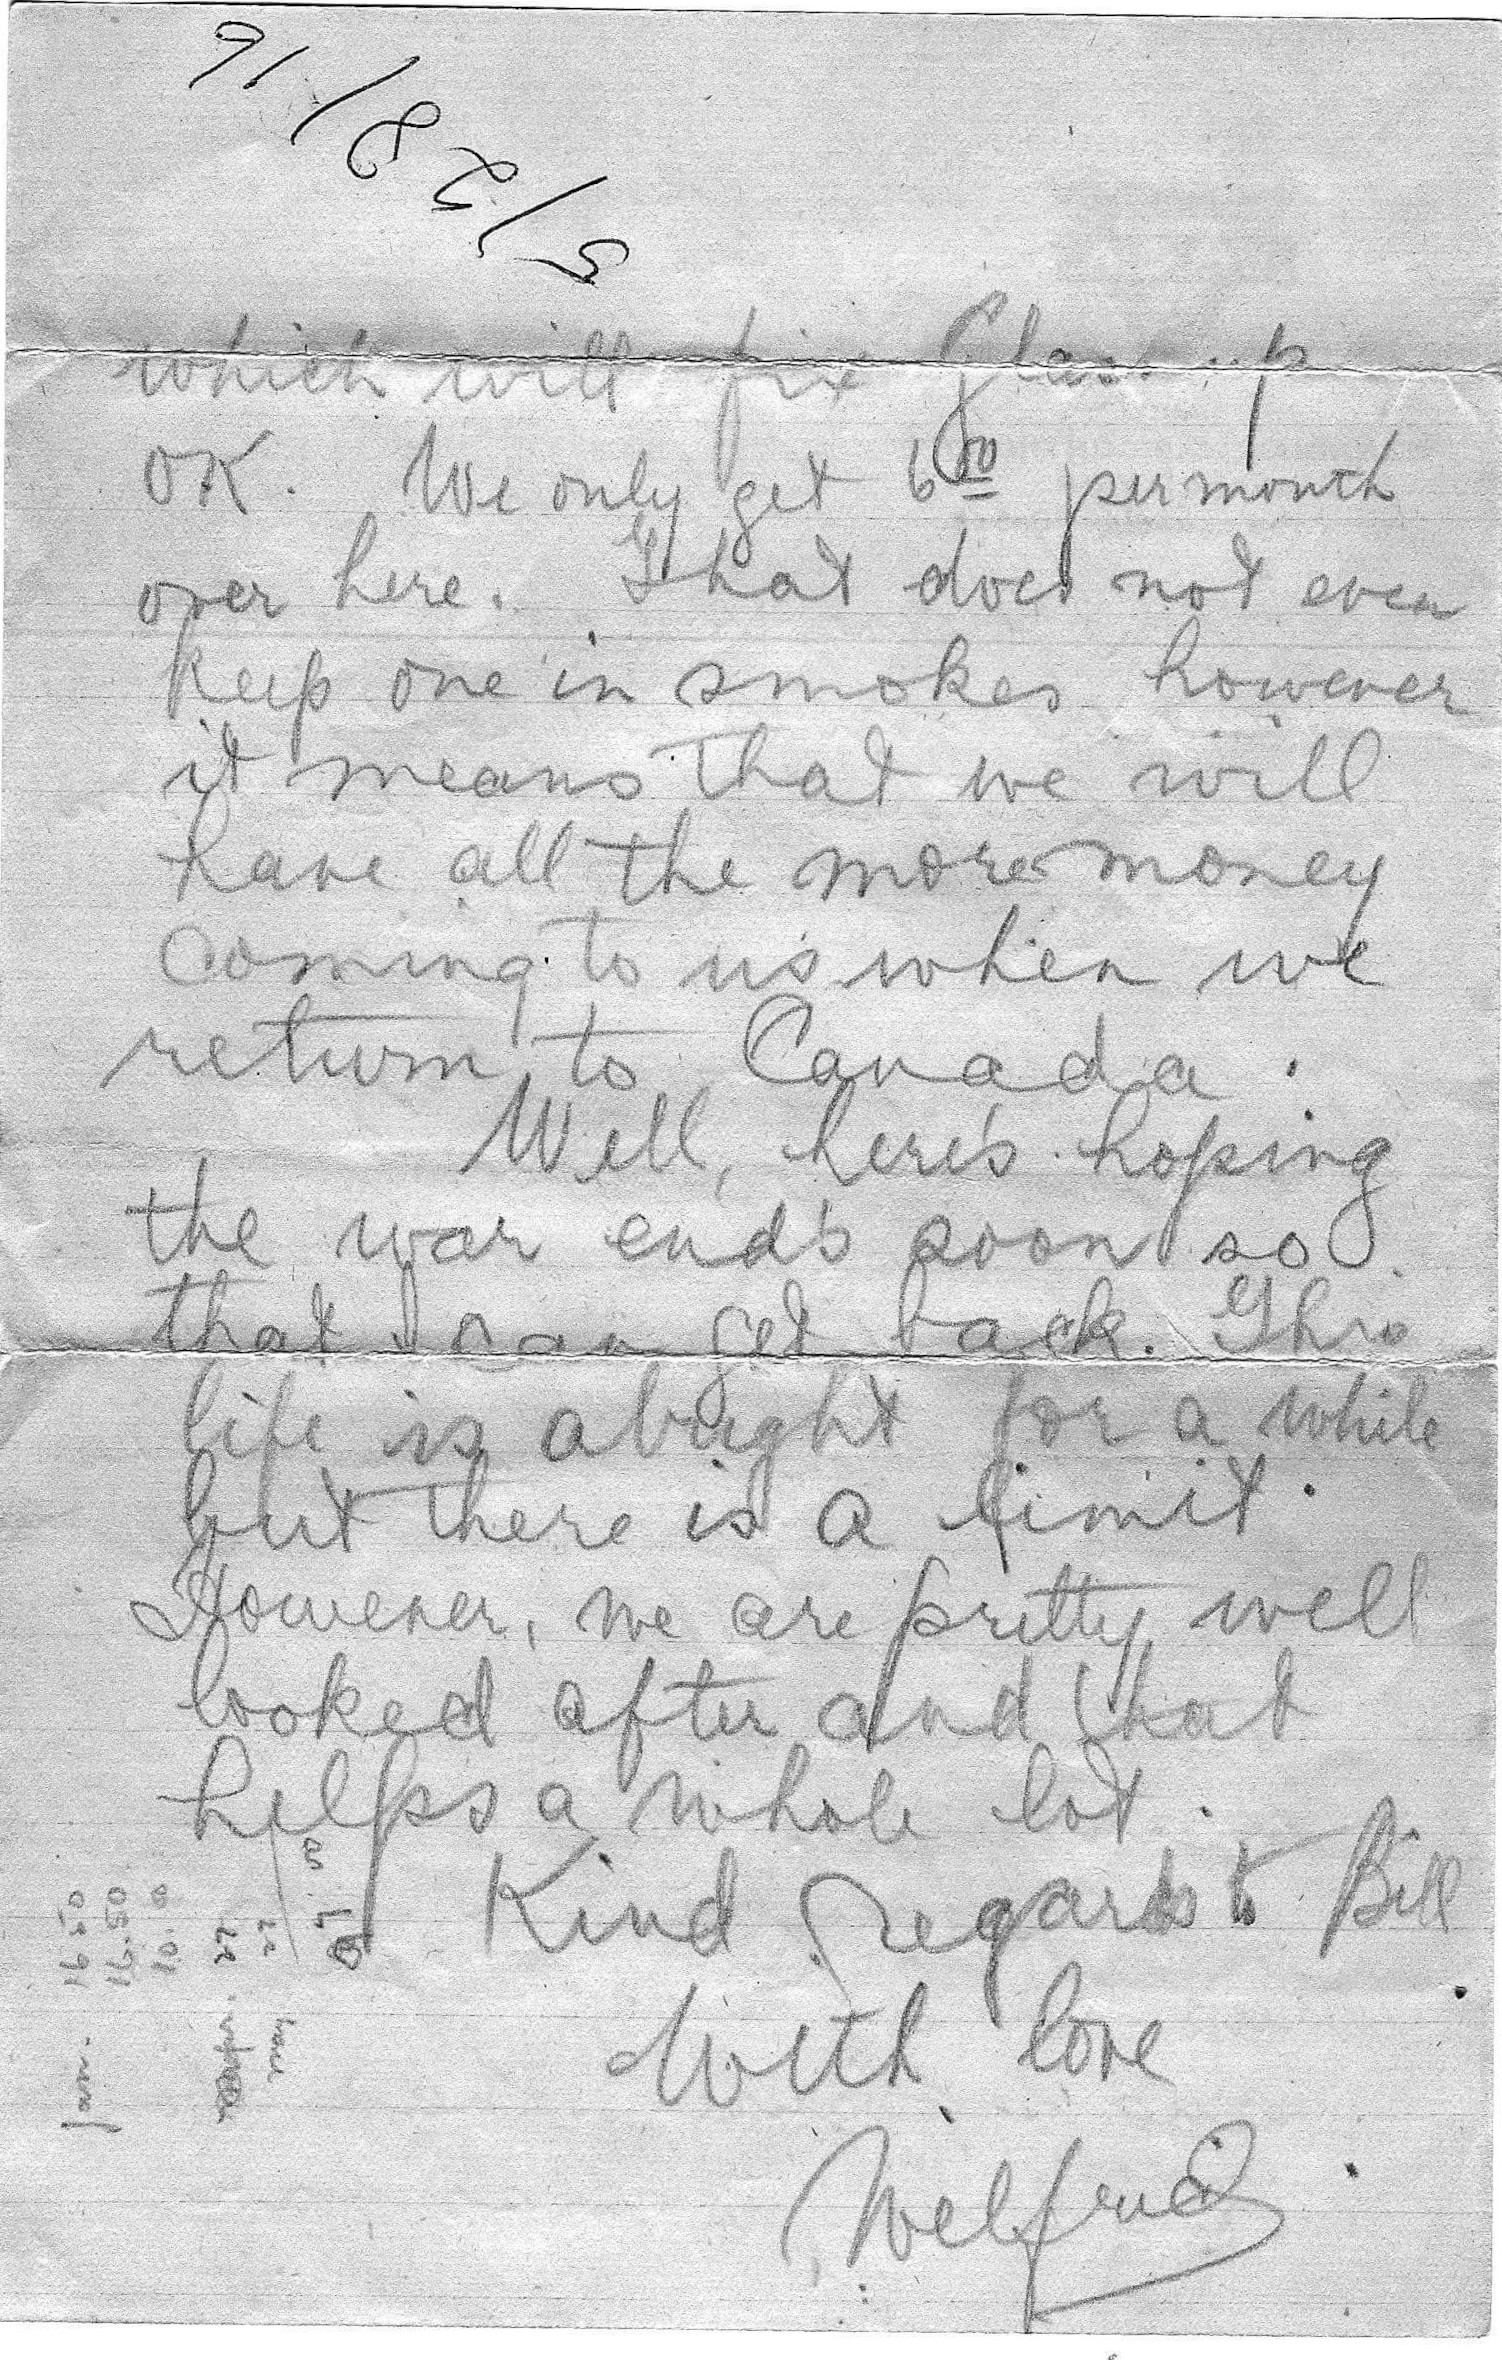 5/28/16
which will fix up
OK. We only get 6 00 per month
over here. That does not even
keep one in smokes however
it means that we will
have all the more money
coming to us when we
return to Canada.
Well, here's hoping
the war ends soon so
that I can get back. This
life is alright for a while
but there is a limit.
However, we are pretty well
looked after and that
helps a whole lot.
Kind regards to Bill
With love
Wilfred
Jan. 16 50
16.50
10.00
Apr. 27
May 27